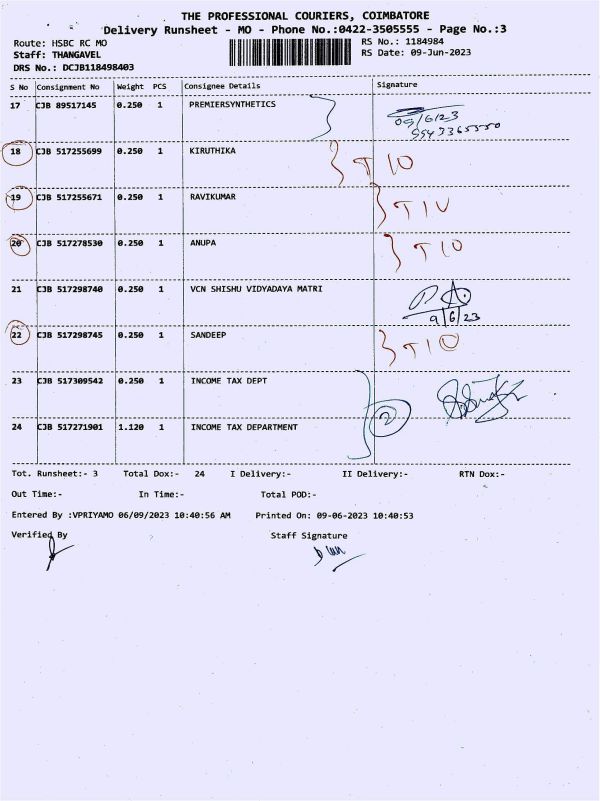 THE PROFESSIONAL COURIERS, COIMBATORE
Delivery Runsheet - MO - Phone No.:0422-3505555 - Page No.:3
Route: HSBC RC MO RS No.: 1184984
Staff: THANGAVEL RS Date: 09-Jun-2023
DRS No.: DCJB118498403
S No Consignment No Weight PCS Consignee Details Signature
17 CJB 89517145 0.250 1 PREMIERSYNTHETICS 09/6/23
18 CJB 517255699 0.250 1 KIRUTHIKA T10
19 CJB 517255671 0.250 1 RAVIKUMAR
20 CJB 517278530 0.250 1 ANUPA T10
21 CJB 517298740 0.250 1 VCN SHISHU VIDYADAYA MATRI 9/6/23
22 CJB 517298745 0.250 1 SANDEEP T10
23 CJB 517309542 0.250 1 INCOME TAX DEPT
2
24 CJB 517271901 1.120 1 INCOME TAX DEPARTMENT
Tot. Runsheet:- 3 Total Dox:- 24 I Delivery:- II Delivery:- RTN Dox:-
Out Time:- In Time:- Total POD:-
Entered By :VPRIYAMO 06/09/2023 10:40:56 AM Printed On: 09-06-2023 10:40:53
Verified By Staff Signature